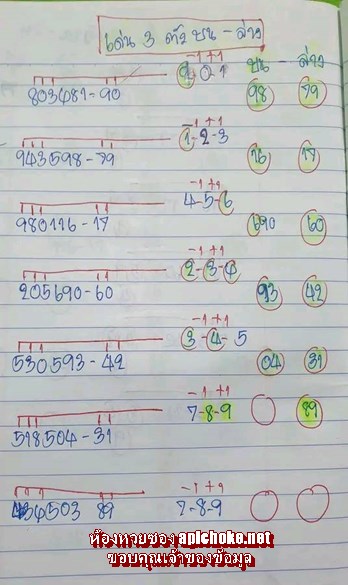 เด่น 3 ตัว บน - ล่าง
-1 +1 บน - ล่าง
9 0 1 98 79
803481-90
-1 +1
1-2-3 16 17
943598-79
-1 +9
4-5-6 690 60
980116-17
-1 +1
2-3-4 93 42
205690-60
-1 +1
3-4-5 04 31
530593-42
-1 +1
7-8-9 89
518504-31
-1 +9
7-8-9
434503 89
ห้องหวยซอง apichoke.net
ขอบคุณเจ้าของข้อมูล